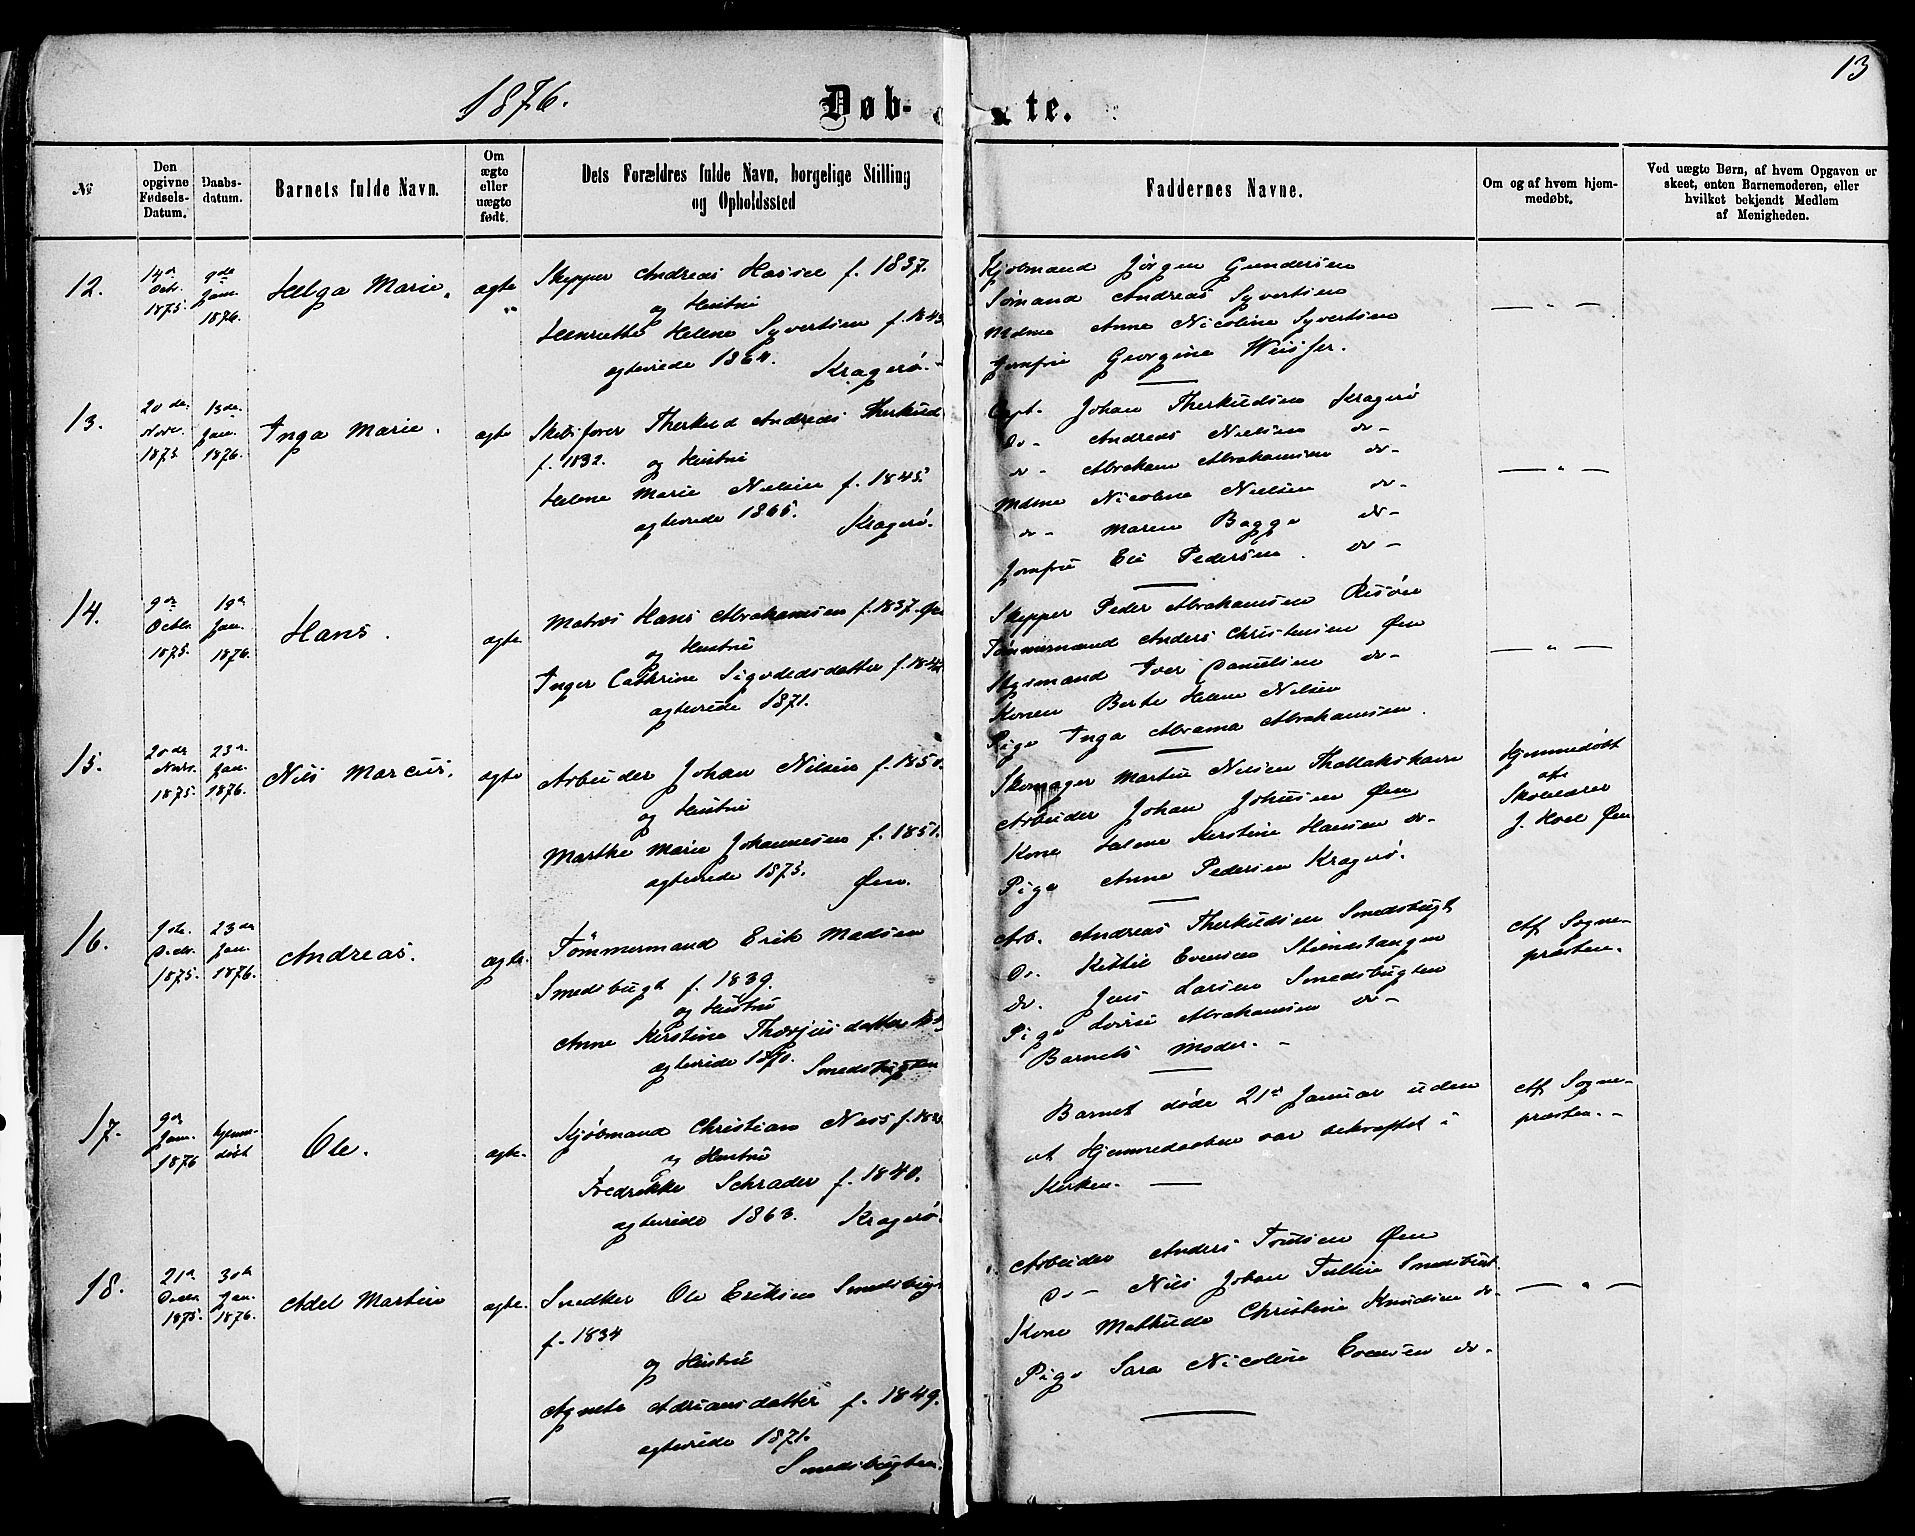 13
1876.
Døb- te.
№
Den opgivne Fødsels-Datum.
Daabs-datum.
Barnets fulde Navn.
Om ægte eller uægte født.
Dets Forældres fulde Navn, borgelige Stilling og Opholdssted
Faddernes Navne.
Om og af hvem hjem-medøbt.
Ved uægte Børn, af hvem Opgaven er skeet, enten Barnemoderen, eller hvilket bekjendt Medlem af Menigheden.
12.
14de Octr. 1875.
9de Jan. 1876.
Helga Marie.
ægte
Skipper Andreas Hassel f. 1837.
og Hustru
Henriette Helene Syvertsen f. 1843
ægteviede 1864. Kragerø.
Kjøbmand Jørgen Gundersen
Sømand Andreas Syvertsen
Mdme Anne Nicoline Syvertsen
Jomfru Georgine
— " —
13.
20de Novr. 1875.
13de Jan. 1876.
Inga Marie.
ægte
Skibsfører Therkild Andreas Therkild
f. 1832. og Hustru
Helene Marie Nielsen f. 1845.
ægteviede 1866. Kragerø.
Capt. Johan Therkildsen Kragerø
Do- Andreas Nielsen do-
do- Abraham Abrahamsen do-
Mdme Nicoline Nielsen do-
do- Maren Bagge do-
Jomfru Eli Pedersen. do-
— " —
14.
9de Octbr. 1875.
19de Jan. 1876.
Hans.
ægte
Matros Hans Abrahamsen f. 1837. Øen
og Hustru
Inger Cathrine Sigvaldsdatter f. 1844
ægteviede 1871.
Skipper Peder Abrahamsen Risøen
Tømmermand Anders Christensen Øen
Styrmand Iver Danielsen do-
Konen Berte Helene Nielsen
Pige Inga Abrama Abrahamsen.
— " —
15.
20de Novr. 1875.
23de Jan. 1876.
Nils Marcus.
ægte
Arbeider Johan Nilsen f. 1850.
og Hustru
Marthe Marie Johannesen f. 1851.
ægteviede 1875. Øen.
Skomager Martin Nilsen Thallakshavn
Arbeider Johan Johnsen Øen
Kone Helene Kerstine Hansen do-
Pige Anne Pedersen Kragerø.
Hjemmedøbt
af
Skolelærer
J. Hoel Øen
16.
Decbr. 1875.
23de Jan. 1876.
Andreas.
ægte.
Tømmermand Erik Madsen
Smedsbugt f. 1839.
og Hustru
Anne Kerstine datter
ægteviede 1870. Smedsbugten
Arb. Andreas Therkildsen Smedsbugt
Do. Kittil Evensen Steindstangen
do. Jens Larsen Smedsbugten
Pige Lovise Abrahamsen do-
Barnets Moder.
Af Sogne-
præsten.
17.
9de Jan. 1876
hjemmedøbt
Ole.
ægte.
Kjøbmand Christian Ness f.
og Hustru
Fredrikke Schrader f. 1840.
ægteviede 1863. Kragerø.
Barnet døde 21de Januar uden
at Hjemmedaaben var bekræftet i
Kirken. —
Af Sogne-
præsten.-
18.
21de Decbr. 1875.
30te Jan. 1876.
Adel Martin
ægte.
Snedker Ole Eriksen Smedsbugt
f. 1834
og Hustru
Agnete Adriansdatter f. 1849.
ægteviede 1871.
Smedsbugten.
Arbeider Anders Øen
Do- Nils Johan Smedsbugt.
Kone Mathilde Christine Knudsen do-
Pige Sara Nicoline Evensen do-
— " —